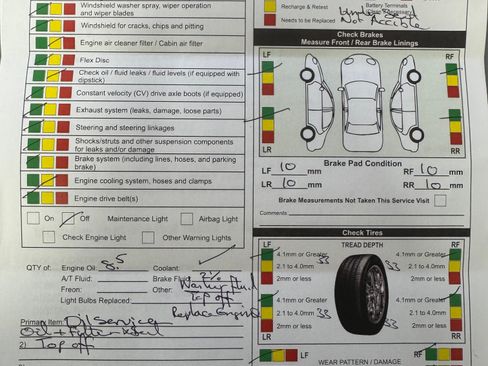 Windshield washer spray, wiper operation
and wiper blades
Windshield for cracks, chips and pitting
Engine air cleaner filter / Cabin air filter
Flex Disc
Check oil / fluid leaks / fluid levels (if equipped with
dipstick)
Constant velocity (CV) drive axle boots (if equipped)
Exhaust system (leaks, damage, loose parts)
Steering and steering linkages
Shocks/struts and other suspension components
for leaks and/or damage
Brake system (including lines, hoses, and parking
brake)
Engine cooling system, hoses and clamps
Engine drive belt(s)
On Off Maintenance Light Airbag Light
Check Engine Light Other Warning Lights
QTY of: Engine Oil: 8.5 Coolant:
A/T Fluid: Brake Fluid 2%
Freon: Other: Washer fluid
Light Bulbs Replaced: Top off
Replace Engine
Primary Item Oil Service
Oil + Filter
2) Top off
Recharge & Retest
Needs to be Replaced
Battery Terminals
Not
Check Brakes
Measure Front / Rear Brake Linings
LF RF
LR RR
Brake Pad Condition
LF 10 mm RF 10 mm
LR 10 mm RR 10 mm
Brake Measurements Not Taken This Service Visit
Comments
Check Tires
LF TREAD DEPTH RF
4.1mm or Greater 33 4.1mm or Greater 33
2.1 to 4.0mm 2.1 to 4.0mm
2mm or less 2mm or less
LR RR
4.1mm or Greater 4.1mm or Greater
2.1 to 4.0mm 33 2.1 to 4.0mm 33
2mm or less 2mm or less
LF WEAR PATTERN / DAMAGE RF